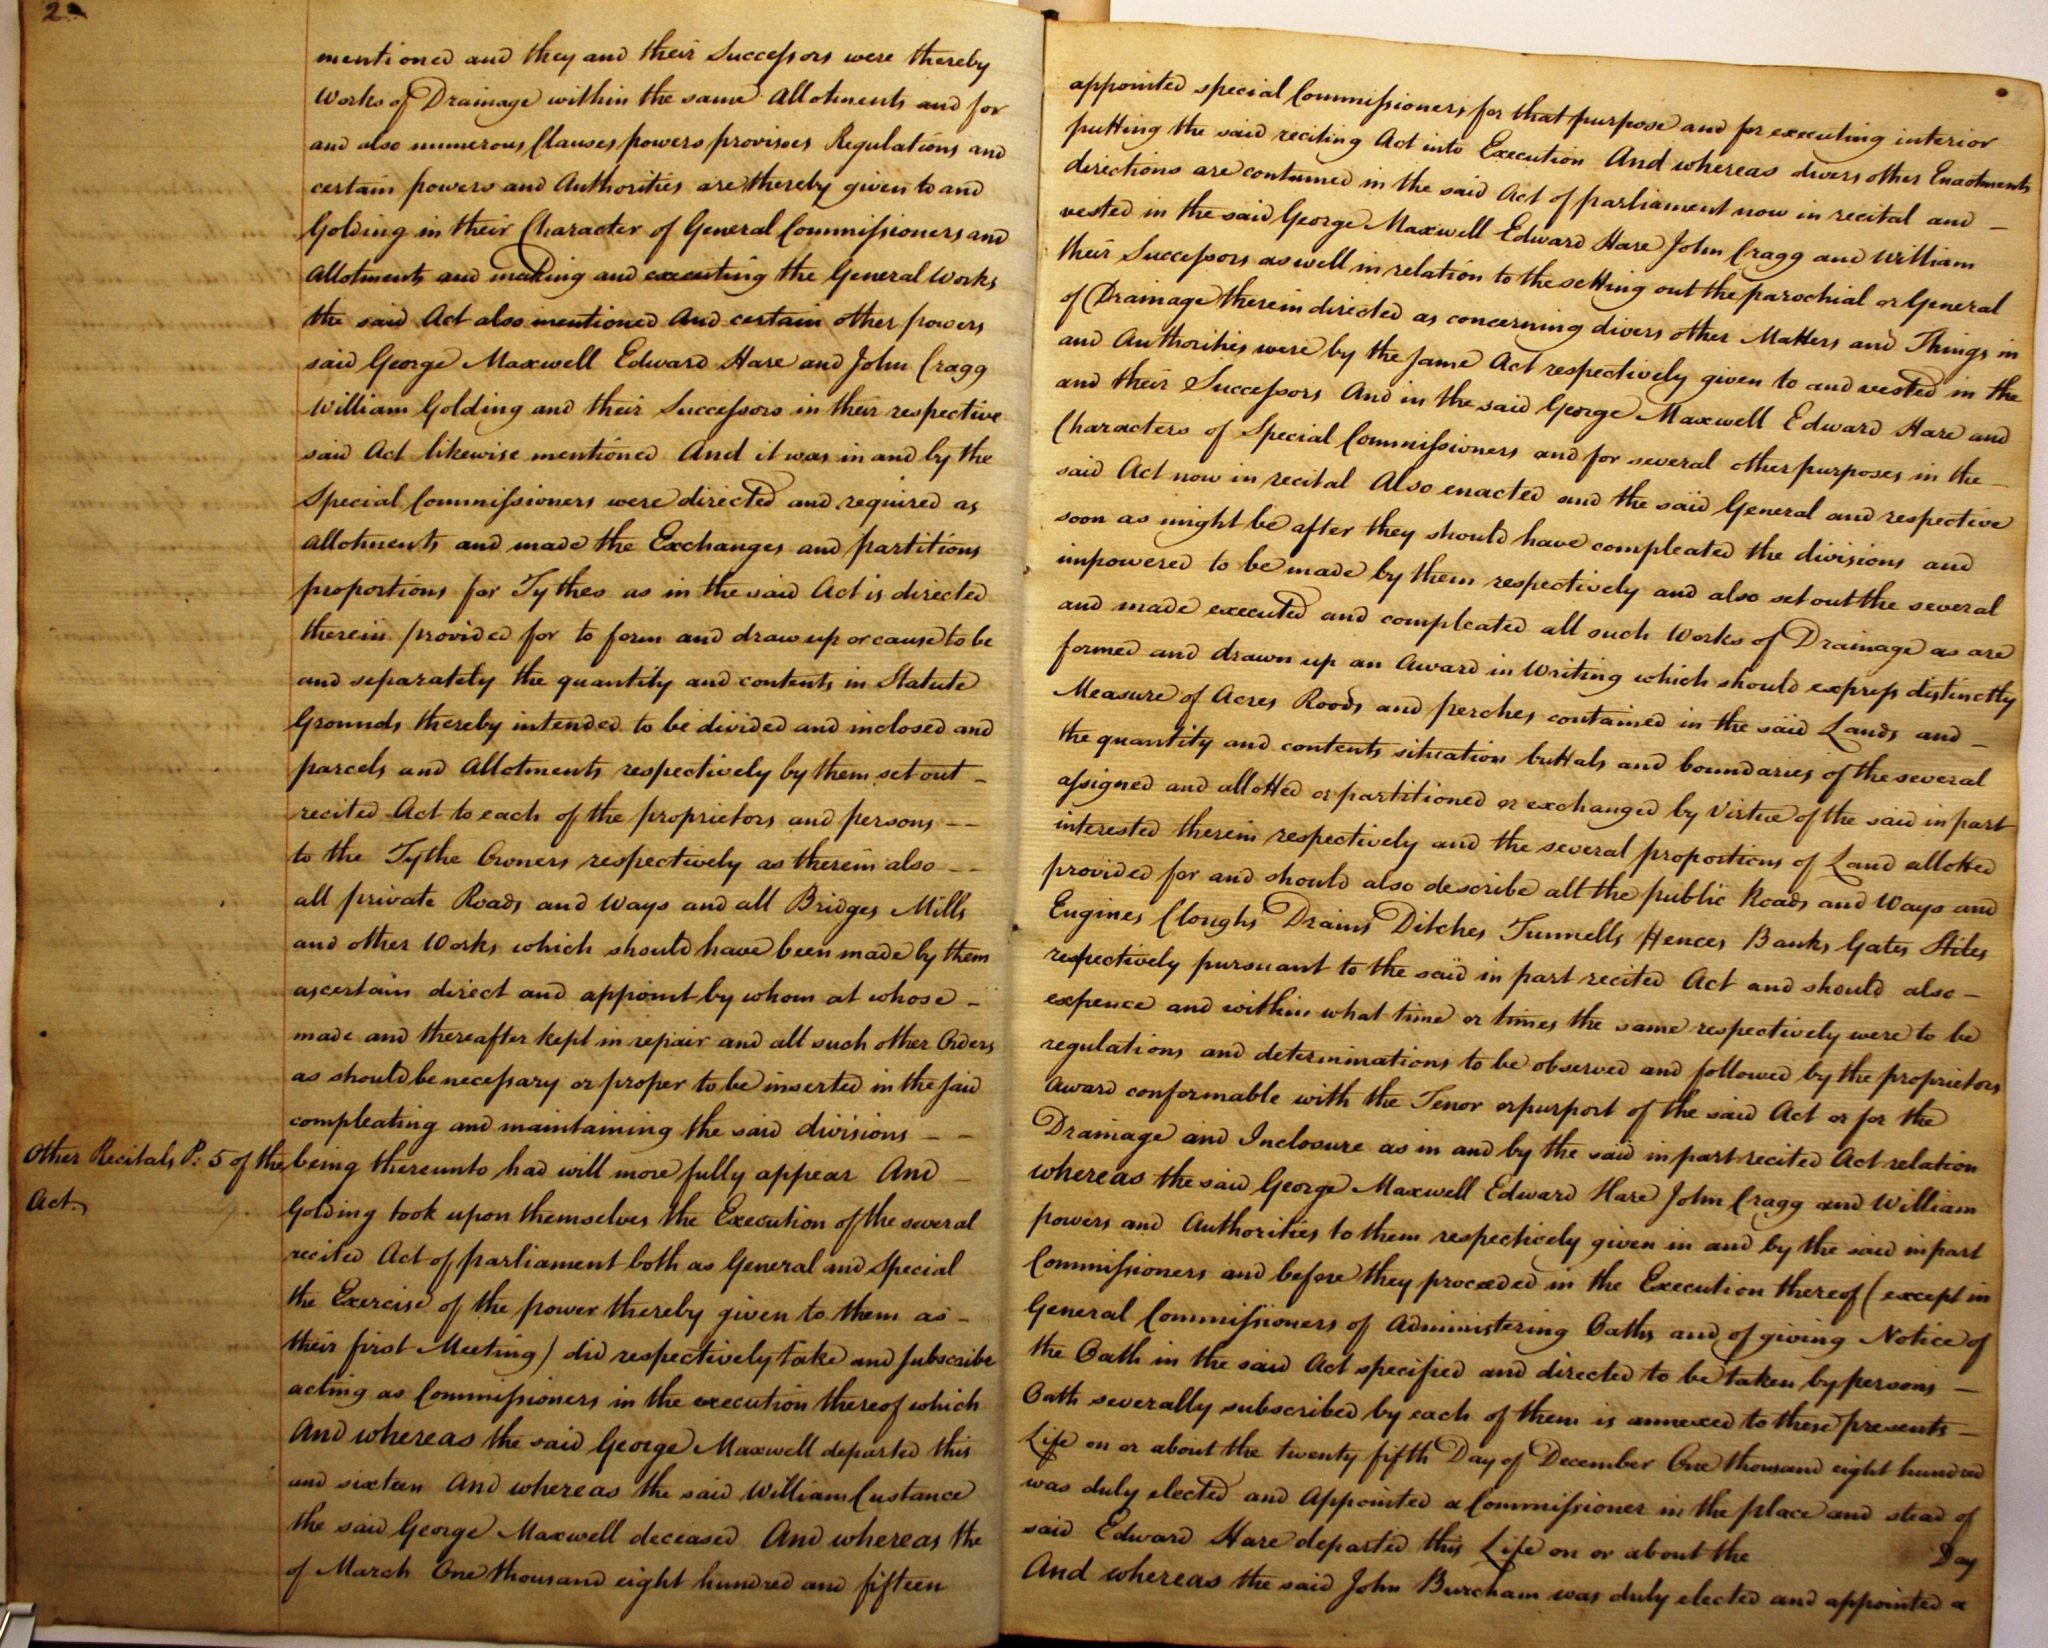 2
mentioned and they and their Successors were thereby
appointed special Commissioners for that purpose and for executing interior
Works of Drainage within the same Allotments and for
putting the said reciting Act into Execution And whereas divers other Enactments
and also numerous Clauses powers provisoes Regulations and
directions are contained in the said Act of parliament now in recital and –
certain powers and Authorities are thereby given to and
vested in the said George Maxwell Edward Hare John Cragg and William
Golding in their Character of General Commissioners and
their Successors as well in relation to the setting out the parochial or General
Allotments and making and executing the General Works
of Drainage therein directed as concerning divers other Matters and Things in
the said Act also mentioned And certain other powers
and Authorities were by the same Act respectively given to and vested in the
said George Maxwell Edward Hare and John Cragg
and their Successors And in the said George Maxwell Edward Hare and
William Golding and their Successors in their respective
Characters of Special Commissioners and for several other purposes in the –
said Act likewise mentioned And it was in and by the
said Act now in recital Also enacted and the said General and respective
Special Commissioners were directed and required as
soon as might be after they should have compleated the divisions and
Allotments and made the Exchanges and partitions
impowered to be made by them respectively and also set out the several
proportions for Tythes as in the said Act is directed
and made executed and compleated all such Works of Drainage as are
therein provided for to form and draw up or cause to be
formed and drawn up an Award in Writing which should express distinctly
and separately the quantity and contents in Statute
Measure of Acres Roods and perches contained in the said Lands and –
Grounds thereby intended to be divided and inclosed and
the quantity and contents situation buttals and boundaries of the several
parcels and Allotments respectively by them set out –
assigned and allotted or partitioned or exchanged by Virtue of the said in part
recited Act to each of the proprietors and persons – –
interested therein respectively and the several proportions of Land allotted
to the Tythe Owners respectively as therein also – –
provided for and should also describe all the public Roads and Ways and
all private Roads and Ways and all Bridges Mills
Engines Cloughs Drains Ditches Tunnells Fences Banks Gates Stiles
and other Works which should have been made by them
respectively pursuant to the said in part recited Act and should also –
ascertain direct and appoint by whom at whose –
expence and within what time or times the same respectively were to be
made and thereafter kept in repair and all such other Orders
regulations and determinations to be observed and followed by the proprietors
as should be necessary or proper to be inserted in the said
Award conformable with the Tenor or purport of the said Act or for the
compleating and maintaining the said divisions – –
Drainage and Inclosure as in and by the said in part recited Act relation
Other Recitals P. 5 of the
Act.
being thereunto had will more fully appear And –
whereas the said George Maxwell Edward Hare John Cragg and William
Golding took upon themselves the Execution of the several
powers and Authorities to them respectively given in and by the said in part
recited Act of parliament both as General and Special
Commissioners and before they proceeded in the Execution thereof (except in
the Exercise of the power thereby given to them as –
General Commissioners of Administering Oaths and of giving Notice of
their first Meeting) did respectively take and subscribe
the Oath in the said Act specified and directed to be taken by persons –
acting as Commissioners in the execution thereof which
Oath severally subscribed by each of them is annexed to these presents –
And whereas the said George Maxwell departed this
Life on or about the twenty fifth Day of December One thousand eight hundred
and sixteen And whereas the said William Custance
was duly elected and Appointed a Commissioner in the place and stead of
the said George Maxwell deceased And whereas the
said Edward Hare departed this Life on or about the Day
of March One thousand eight hundred and fifteen
And whereas the said John Burcham was duly elected and appointed a